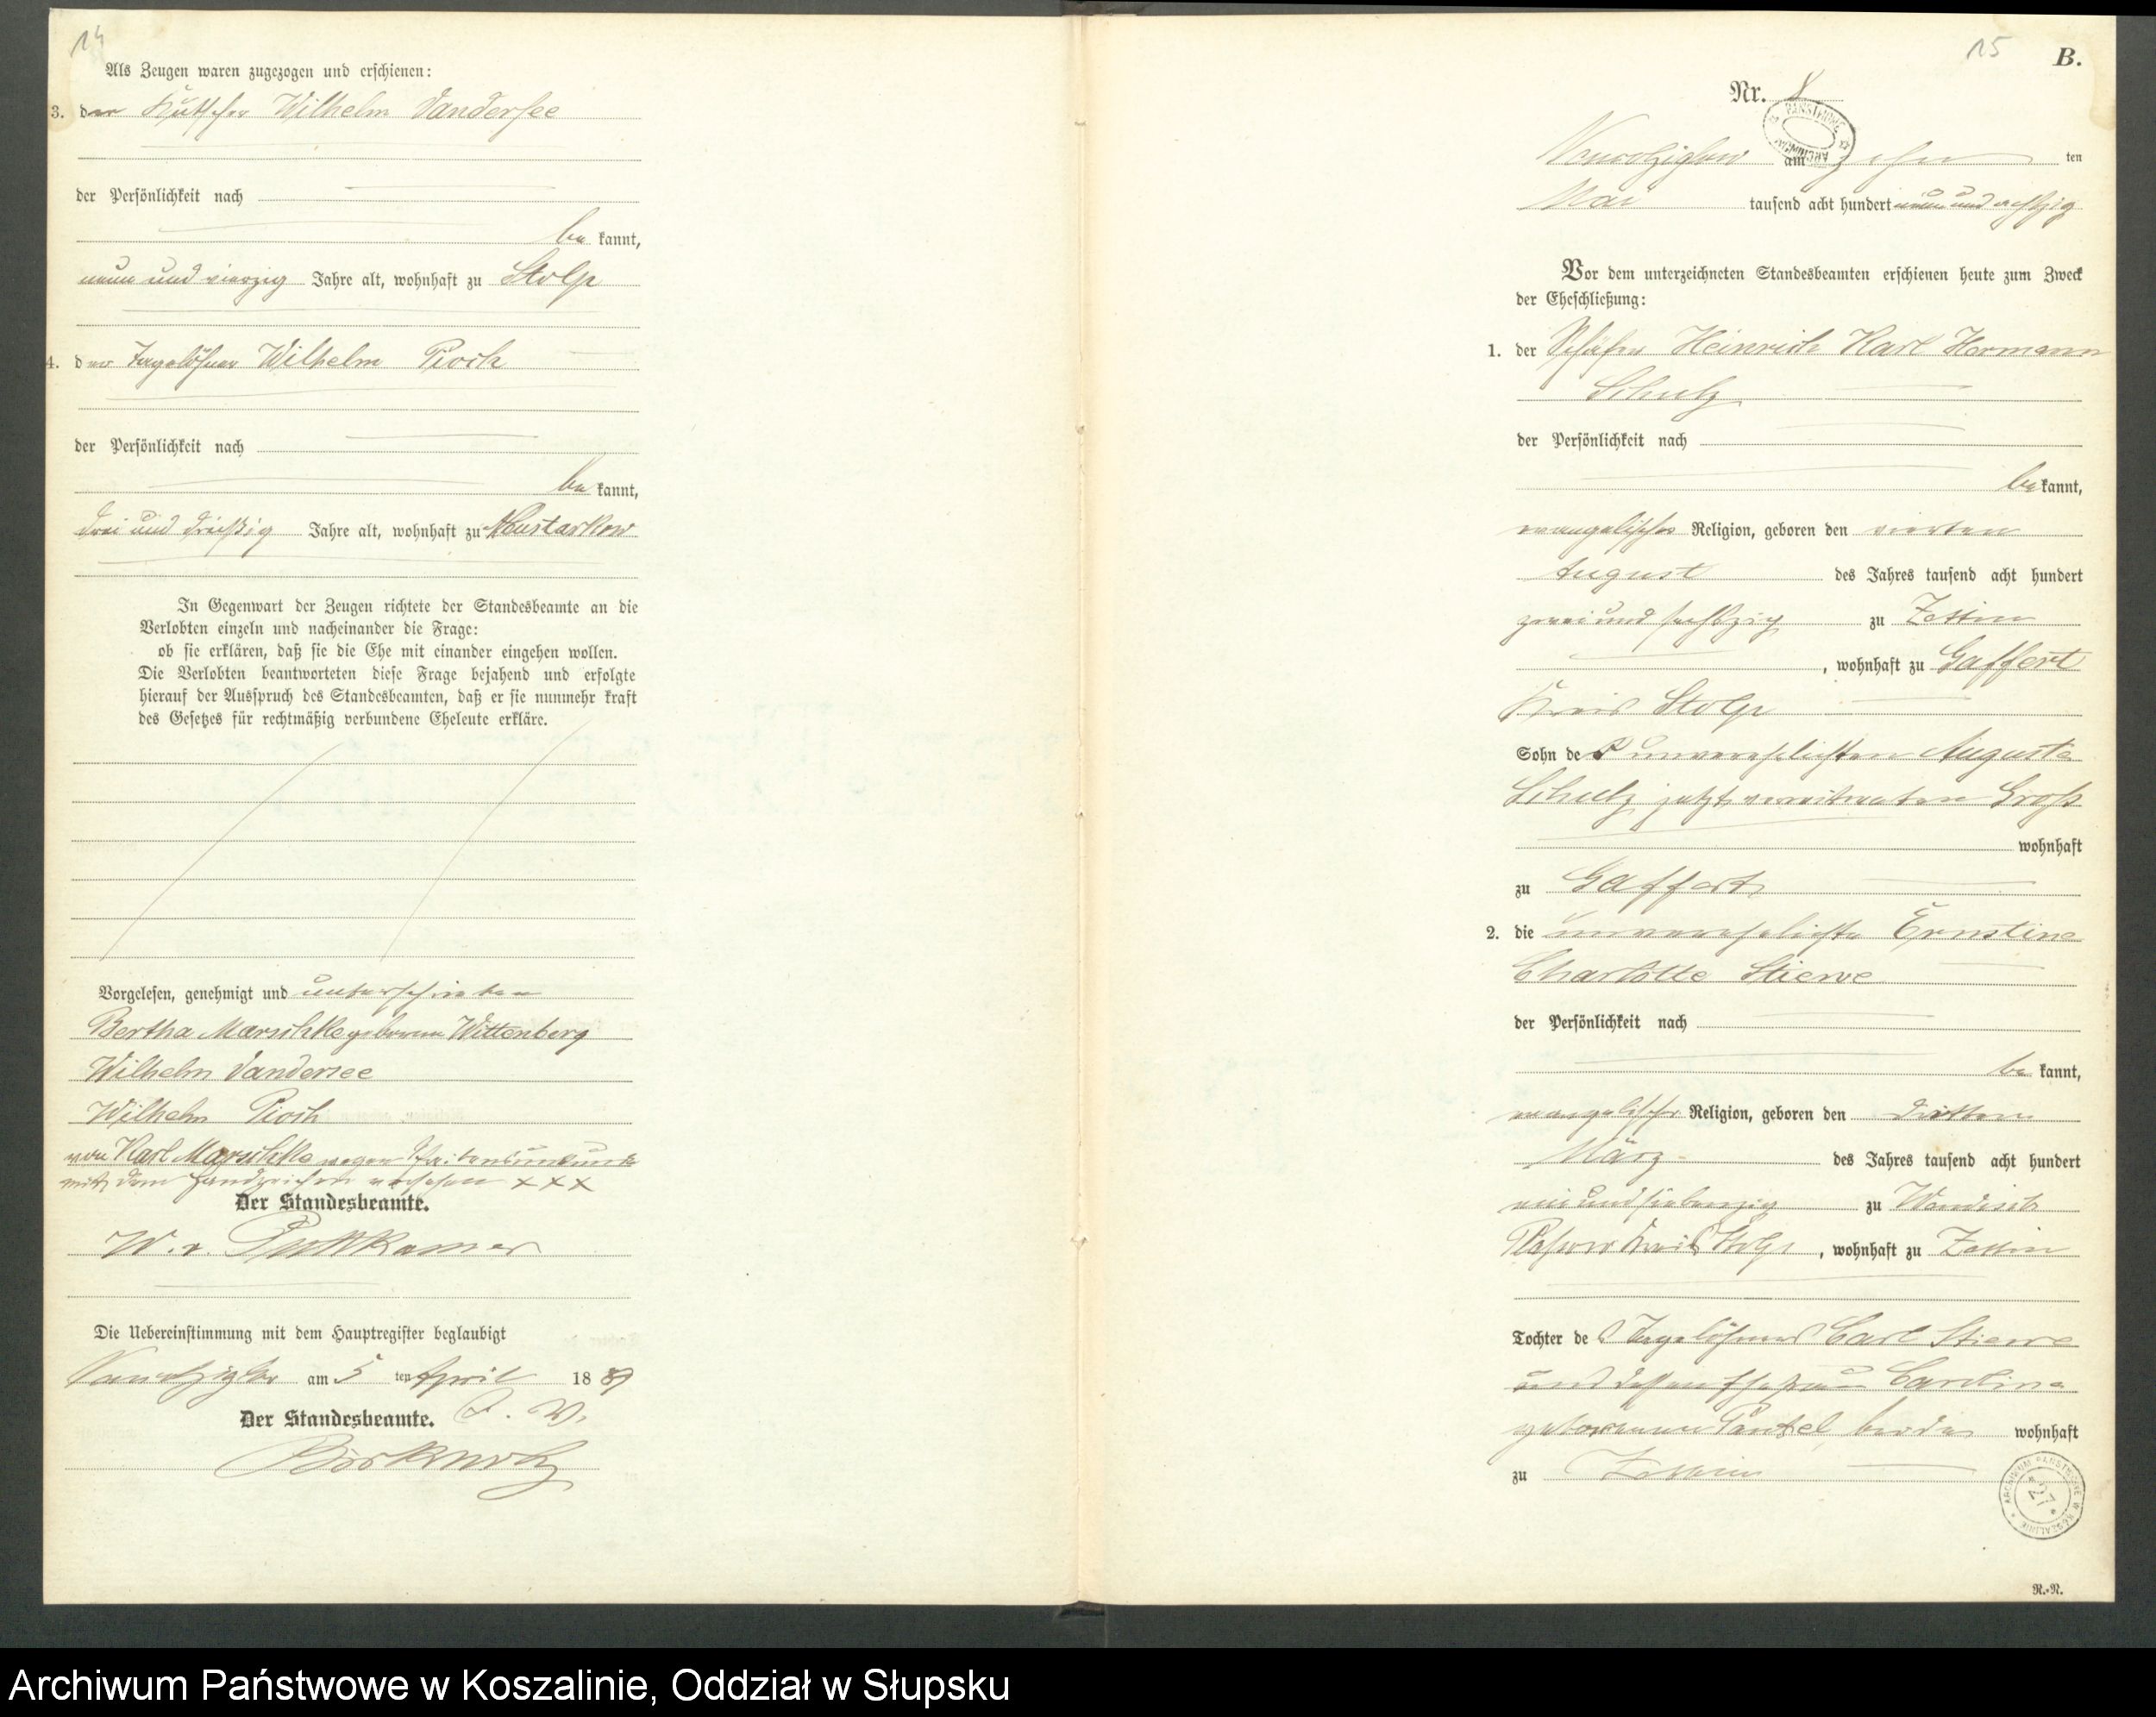 14
Als Zeugen waren zugezogen und erschienen:
3. der Kutscher Wilhelm Vandersee
der Persönlichkeit nach
be kannt,
neun und vierzig Jahre alt, wohnhaft zu Stolp
4. der Tagelöhner Wilhelm Pioch
der Persönlichkeit nach
be kannt,
drei und dreißig Jahre alt, wohnhaft zu Neustarkow
In Gegenwart der Zeugen richtete der Standesbeamte an die
Verlobten einzeln und nacheinander die Frage:
ob sie erklären, daß sie die Ehe mit einander eingehen wollen.
Die Verlobten beantworteten diese Frage bejahend und erfolgte
hierauf der Ausspruch des Standesbeamten, daß er sie nunmehr kraft
des Gesetzes für rechtmäßig verbundene Eheleute erkläre.
Vorgelesen, genehmigt und unterschrieben
Bertha Marschke geborene Wittenberg
Wilhelm Vandersee
Wilhelm Pioch
von Karl Marschke wegen Schreibensunkunde
mit dem Handzeichen versehen XXX
Der Standesbeamte.
W. v. Puttkamer
Die Uebereinstimmung mit dem Hauptregister beglaubigt
am 5 ten April 18 89
Der Standesbeamte. J. V.
15 B.
Nr. 8
am zehn ten
Mai tausend acht hundert neun und achtzig
Vor dem unterzeichneten Standesbeamten erschienen heute zum Zweck
der Eheschließung:
1. der Schäfer Heinrich Karl Hermann
Schulz
der Persönlichkeit nach
be kannt,
evangelischer Religion, geboren den vierten
August des Jahres tausend acht hundert
zwei und sechszig zu Zettin
, wohnhaft zu Gaffert
Kreis Stolp
Sohn der unverehelichten Auguste
Schulz jetzt verwitweten Groß
wohnhaft
zu Gaffert
2. die unverehelichte Ernstine
Charlotte Stiewe
der Persönlichkeit nach
be kannt,
evangelischer Religion, geboren den dritten
März des Jahres tausend acht hundert
ein und siebenzig zu Wendisch
Kreis Stolp, wohnhaft zu Zettin
Tochter des Tagelöhners Carl Stiewe
und dessen Ehefrau Caroline
geborenen beide wohnhaft
zu Zettin
ARCHIWUM PAŃSTWOWE W KOSZALINIE
27
R.-N.
Archiwum Państwowe w Koszalinie, Oddział w Słupsku